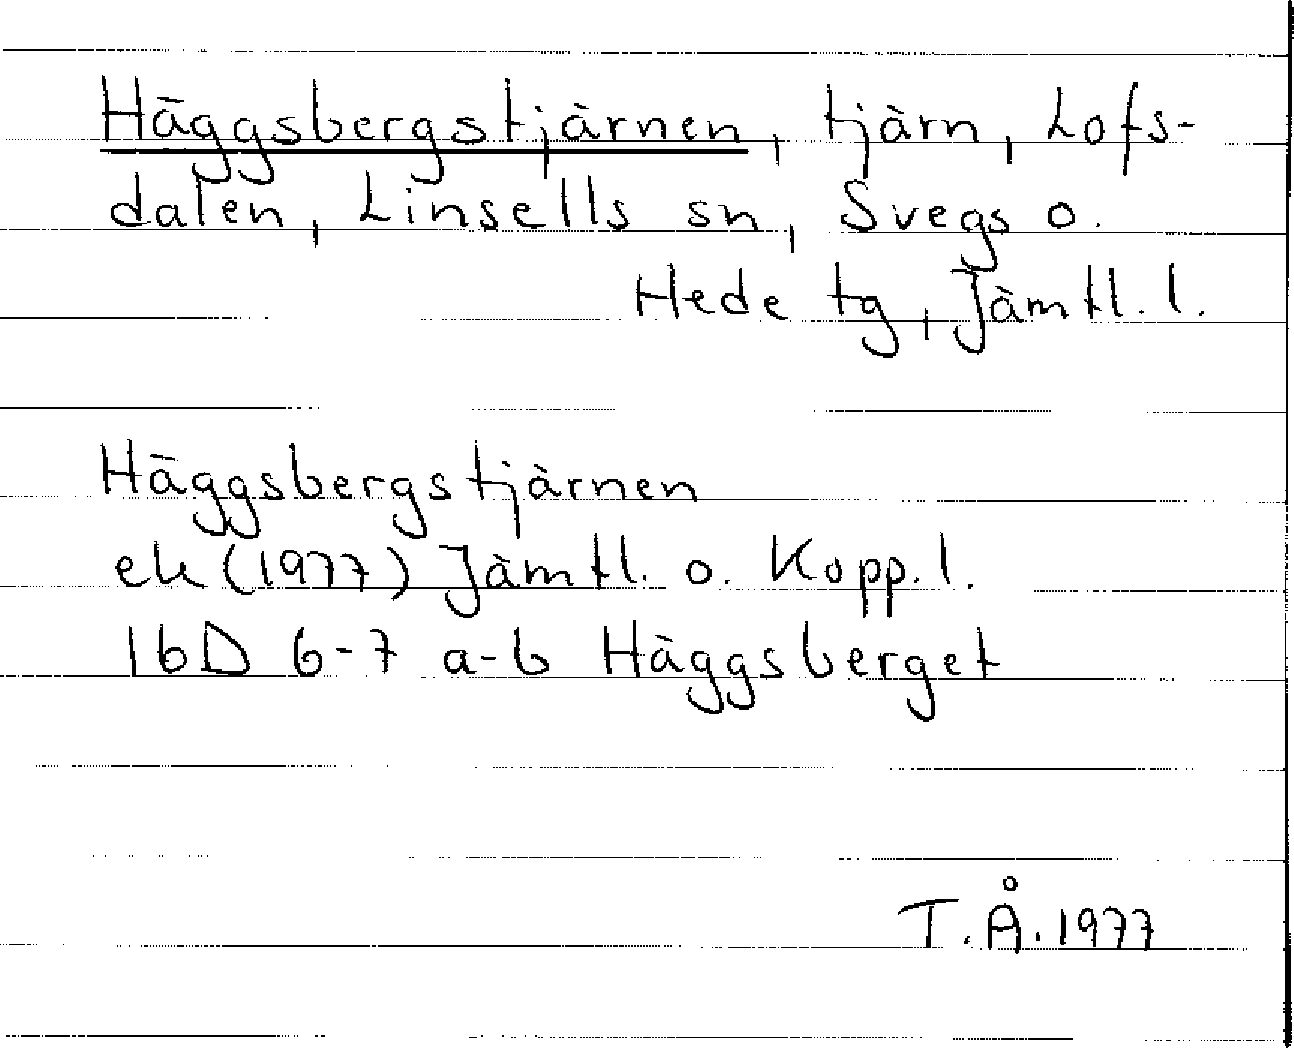 Häggsbergstjärnen, tjärn, Lofs-
dalen, Linsells sn, Svegs o.
Hede tg, Jämtl. l.
Häggsbergstjärnen
ek (1977) Jämtl. o. Kopp. l.
16D 6-7 a-b Häggsberget
T.Å. 1977